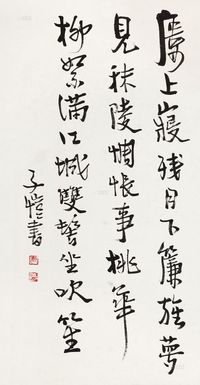 樓上寢殘月下簾旌夢
見秣陵惆悵事桃華
柳絮滿江城雙髻坐吹笙
子愷書